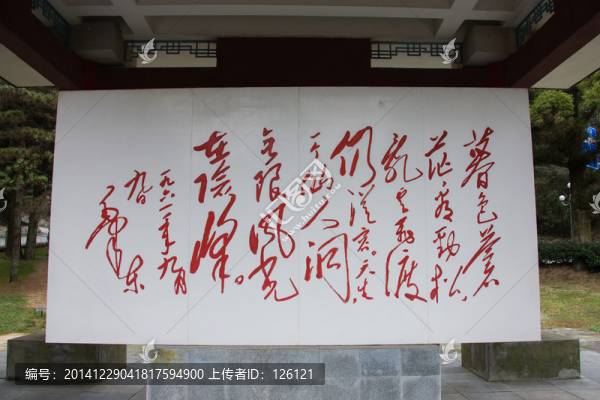 暮色蒼
茫看勁松，
乱云飛渡
仍從容。天生
一个仙人洞
无限風光
在險峰。
一九六一年九月
九日
毛泽东
编号：20141229041817594900 上传者ID：126121